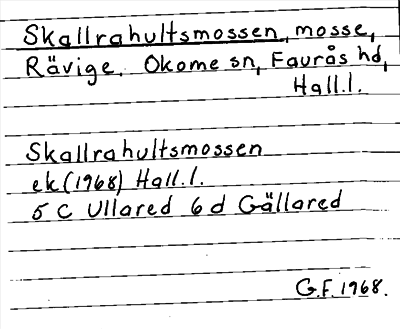 Skallrahultsmossen, mosse,
Rävige, Okome sn, Faurås hd,
Hall.l.
Skallrahultsmossen
ek (1968) Hall.l.
5 C Ullared 6 d Gällared
G.F. 1968.